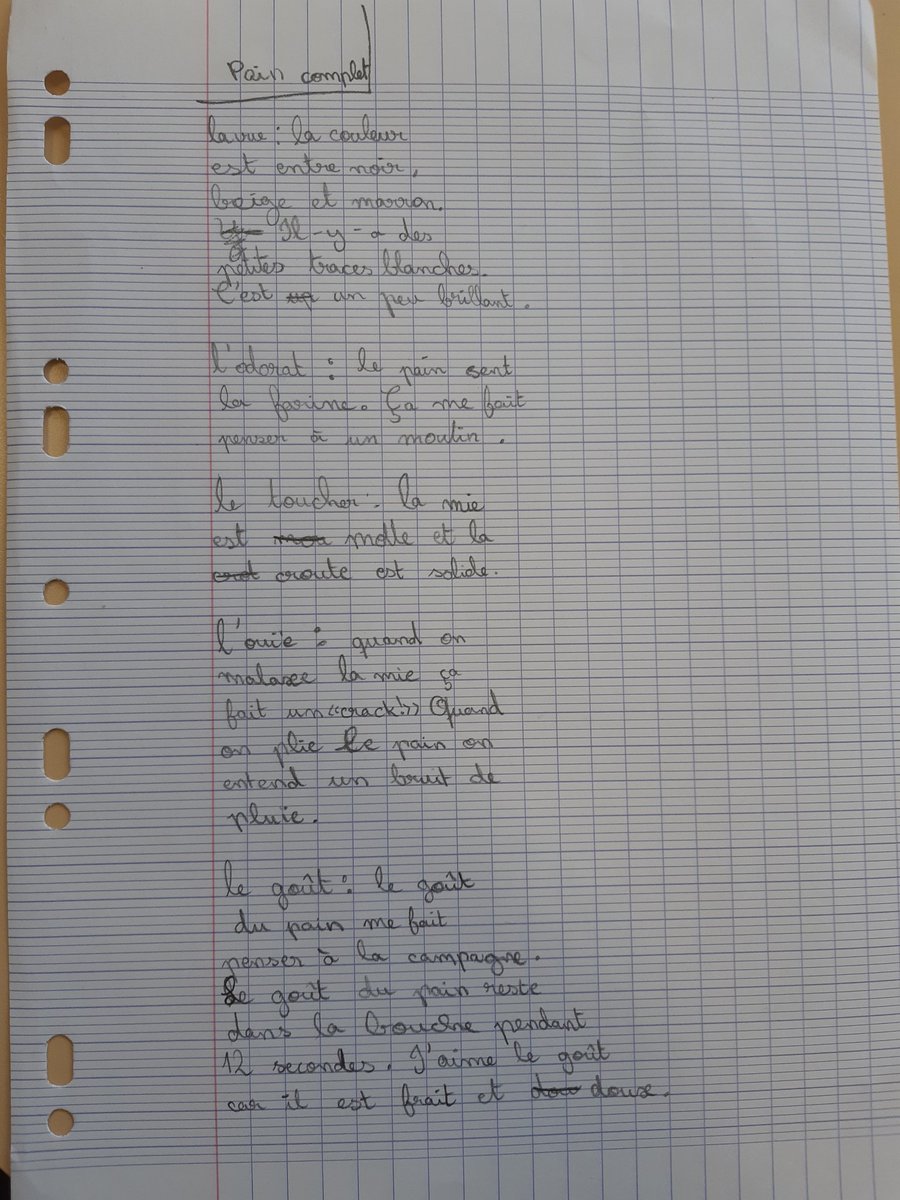 Pain complet
la vue : la couleur
est entre noir,
beige et marron.
Il-y-a des
petites traces blanches.
C'est un peu brillant.
l'odorat : le pain sent
la farine. Ça me fait
penser à un moulin.
le toucher : la mie
est molle et la
croute est solide.
l'ouïe : quand on
malaxe la mie ça
fait un «crack!» Quand
on plie le pain on
entend un bruit de
pluie.
le goût : le goût
du pain me fait
penser à la campagne.
Le goût du pain reste
dans la bouche pendant
12 secondes. J'aime le goût
car il est frait et doux.